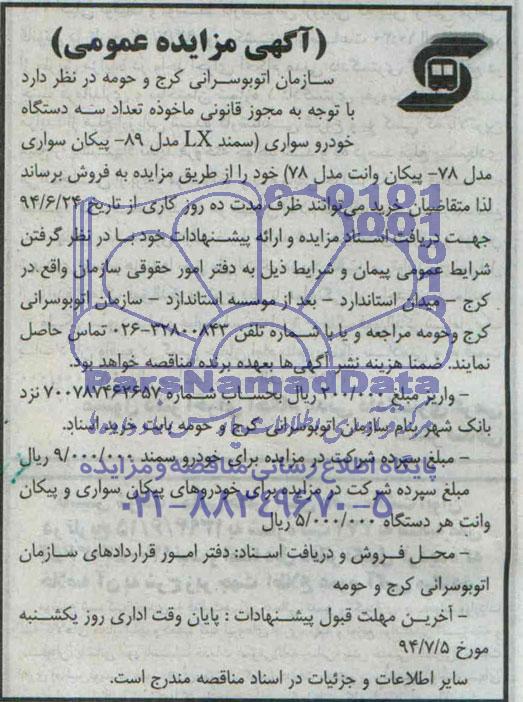 (آگهی مزایده عمومی)
سازمان اتوبوسرانی کرج و حومه در نظر دارد
با توجه به مجوز قانونی ماخوذه تعداد سه دستگاه
خودرو سواری (سمند LX مدل ۸۹- پیکان سواری
مدل ۷۸- پیکان وانت مدل ۷۸) خود را از طریق مزایده به فروش برساند
لذا متقاضیان خرید می‌توانند ظرف مدت ده روز کاری از تاریخ ۹۴/۶/۲۴
جهت دریافت اسناد مزایده و ارائه پیشنهادات خود با در نظر گرفتن
شرایط عمومی پیمان و شرایط ذیل به دفتر امور حقوقی سازمان واقع در
کرج - میدان استاندارد - بعد از موسسه استاندارد - سازمان اتوبوسرانی
کرج وحومه مراجعه و یا با شماره تلفن ۳۲۸۰۰۸۴۳-۰۲۶ تماس حاصل
نمایند. ضمنا هزینه نشر آگهی‌ها بعهده برنده مناقصه خواهد بود.
ParsNamadData
- واریز مبلغ ۲۰۰/۰۰۰ ریال بحساب شماره ۷۰۰۷۸۷۴۶۲۶۵۷ نزد
بانک شهر بنام سازمان اتوبوسرانی کرج و حومه بابت خرید اسناد.
- مبلغ سپرده شرکت در مزایده برای خودرو سمند ۹/۰۰۰/۰۰۰ ریال
پایگاه اطلاع رسانی مناقصه و مزایده
مبلغ سپرده شرکت در مزایده برای خودروهای پیکان سواری و پیکان
۰۲۱-۸۸۳۴۹۶۷۰-۵
وانت هر دستگاه ۵/۰۰۰/۰۰۰ ریال
- محل فروش و دریافت اسناد: دفتر امور قراردادهای سازمان
اتوبوسرانی کرج و حومه
- آخرین مهلت قبول پیشنهادات : پایان وقت اداری روز یکشنبه
مورخ ۹۴/۷/۵
سایر اطلاعات و جزئیات در اسناد مناقصه مندرج است.